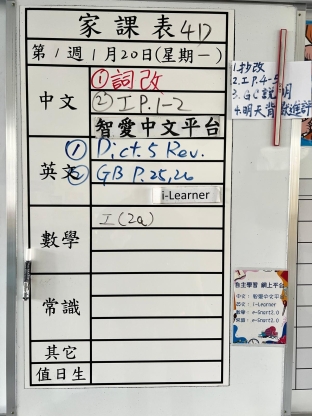 家課表 4D
第1週1月20日(星期一)
中文
①詞改
②工P.1-2
智愛中文平台
英文
①Dict.5 Rev.
②GB P.25,26
i-Learner
數學
工(2a)
常識
其它
值日生
1.抄改
2.工P.4-5
3.GC說明
4.明天背默進評
自主學習 網上平台
中文：智愛中文平台
英文：i-Learner
數學：e-Smart2.0
常識：e-Smart2.0